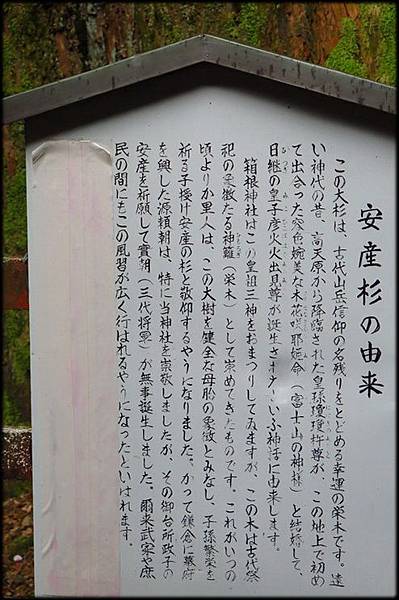 安産杉の由来
この大杉は、古代山岳信仰の名残りをとどめる幸運の栄木です。遠
い神代の昔、高天原から降臨された皇孫瓊瓊杵尊が、この地上で初め
て出合った容色婉美な木花咲耶姫命(富士山の神様)と結婚して、
日継の皇子彦火火出見尊が誕生されたといふ神話に由来します。
箱根神社はこの皇祖三神をおまつりしてゐますが、この木は古代祭
祀の象徴たる神籬(栄木)として崇めてきたものです。これがいつの
頃よりか里人は、この大樹を健全な母胎の象徴とみなし、子孫繁栄を
祈る子授け安産の杉と敬仰するやうになりました。かつて鎌倉に幕府
を興した源頼朝は、特に当神社を崇敬しましたが、その御台所政子の
安産を祈願して實朝(三代将軍)が無事誕生しました。爾来武家や庶
民の間にもこの風習が広く行はれるやうになったといはれます。